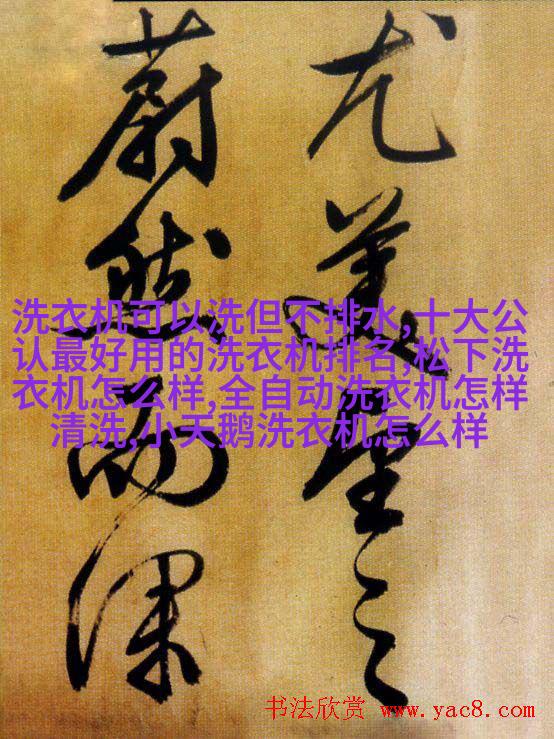 尤美望之
蔚然而深
洗衣机可以洗但不排水,十大公
认最好用的洗衣机排名,松下洗
衣机怎么样,全自动洗衣机怎样
清洗,小天鹅洗衣机怎么样
书法欣赏 www.yac8.com